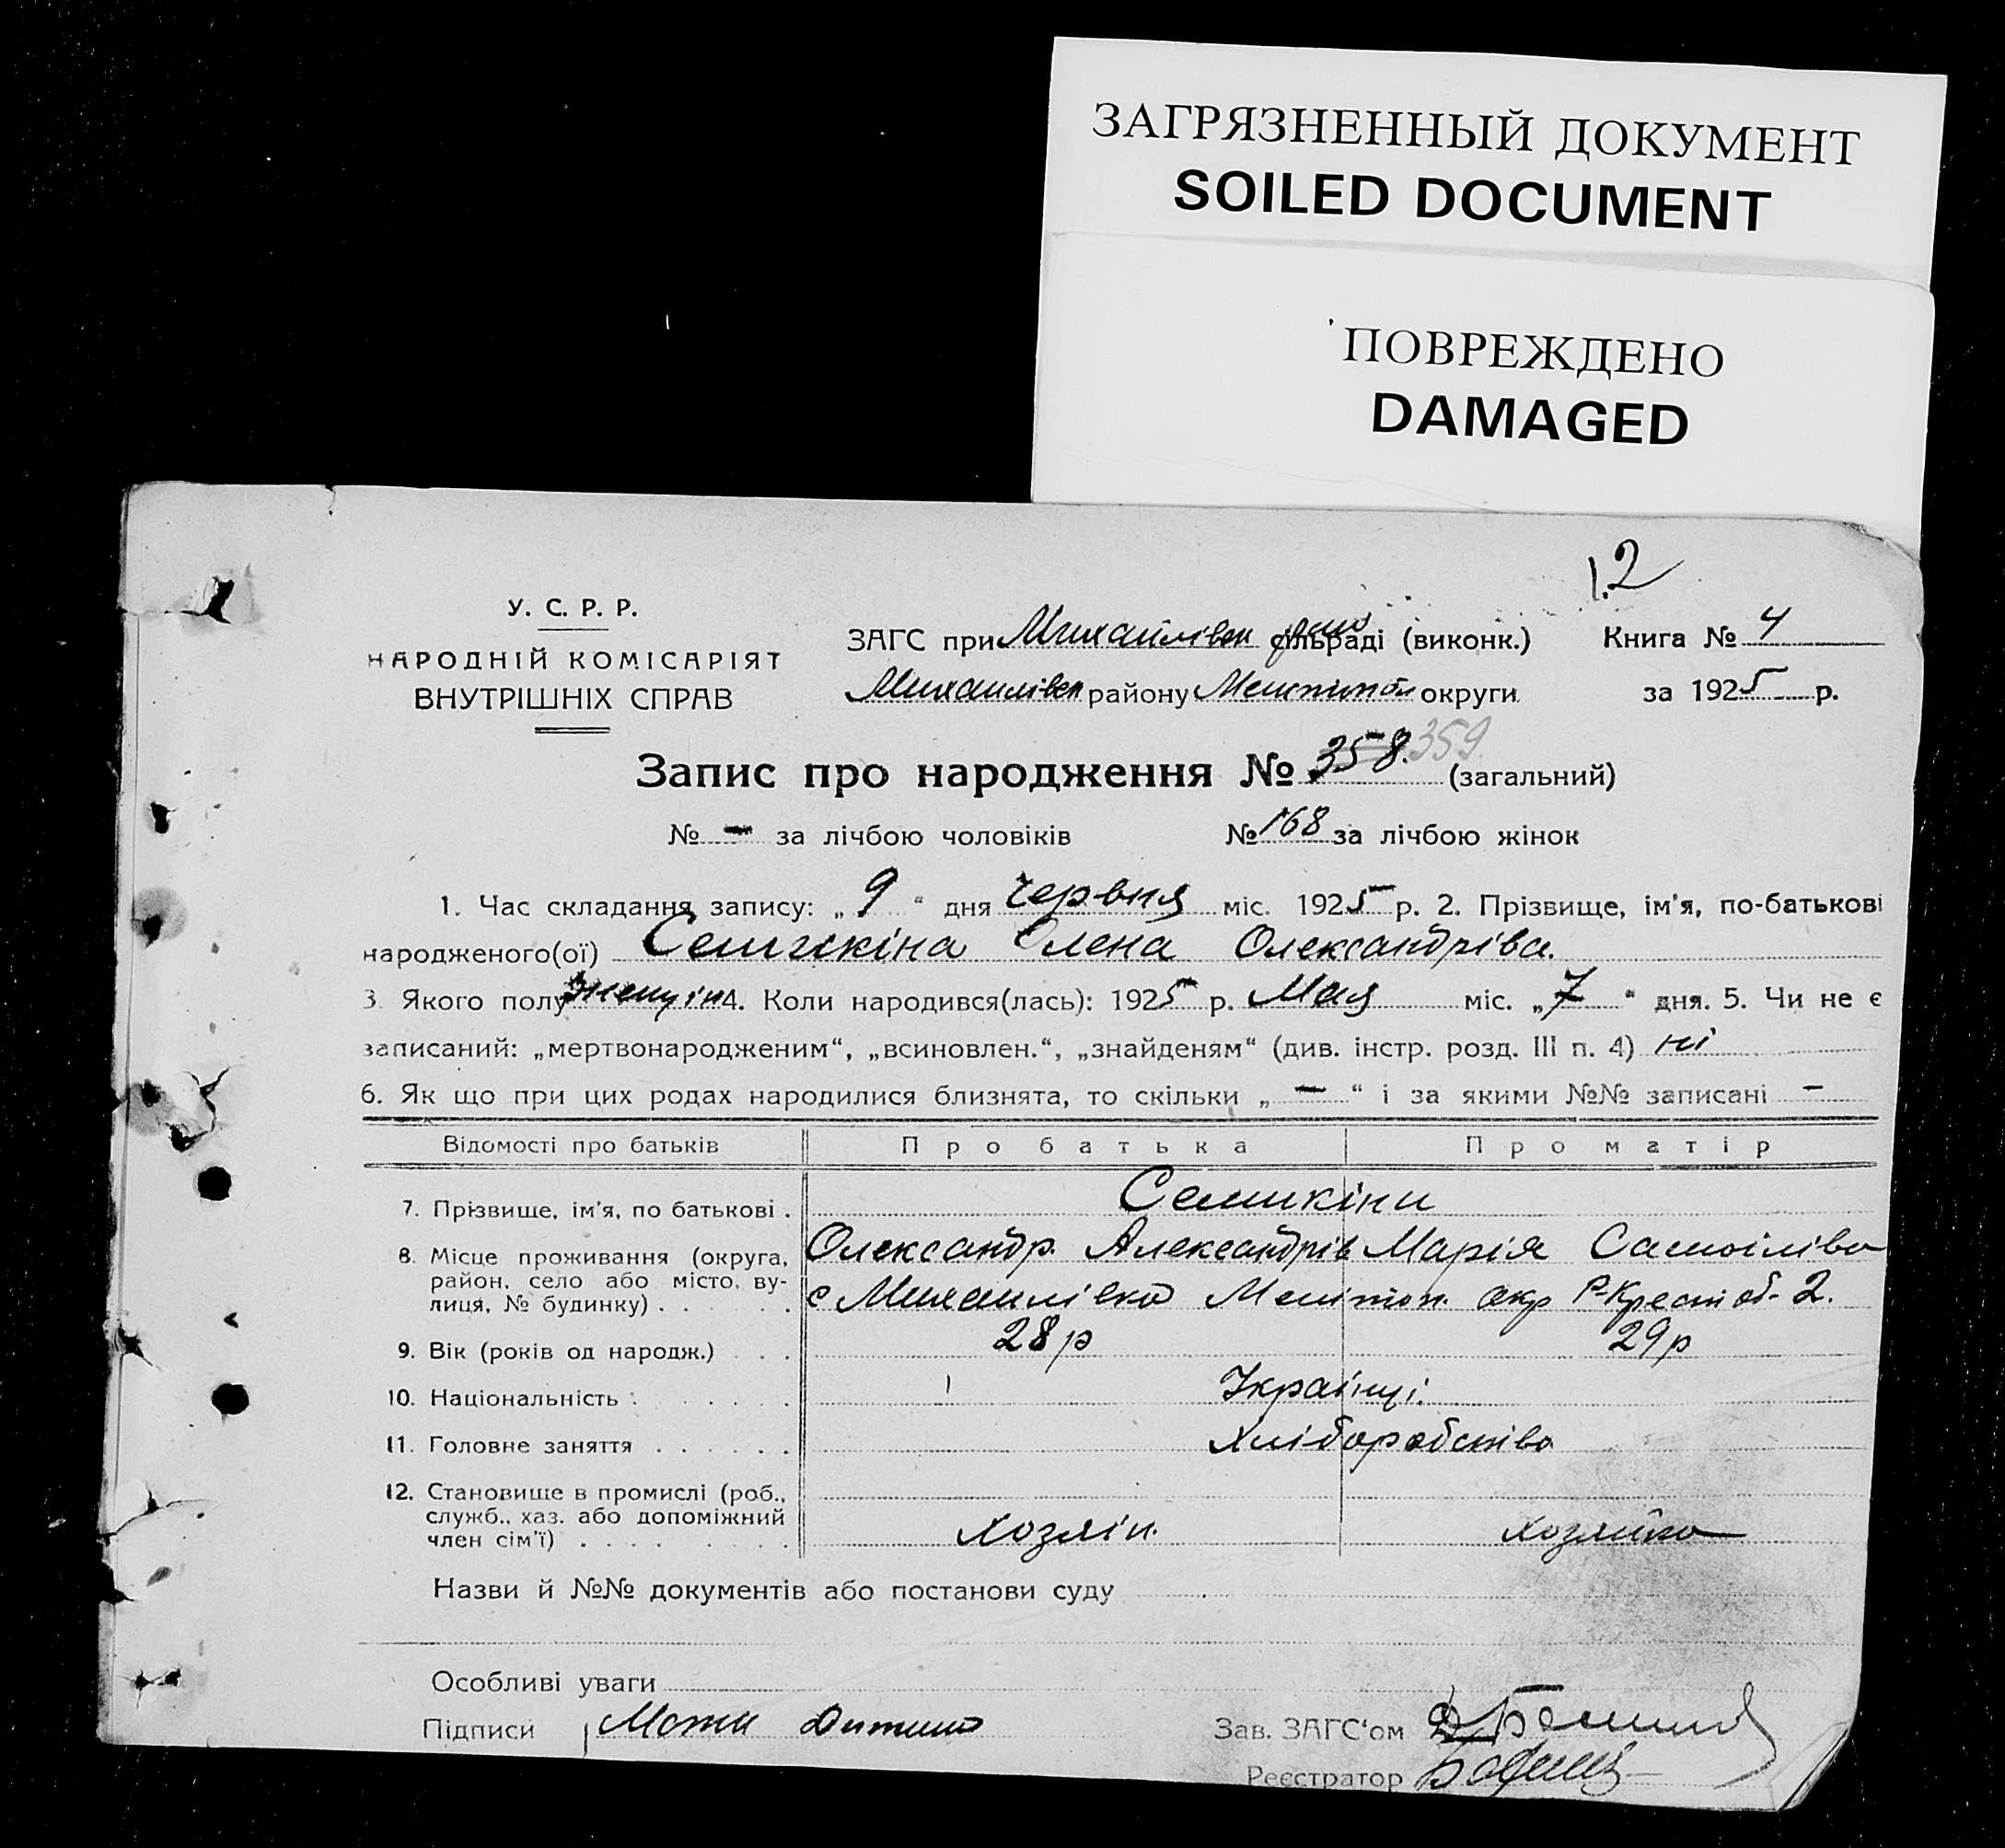 ЗАГРЯЗНЕННЫЙ ДОКУМЕНТ
SOILED DOCUMENT
ПОВРЕЖДЕНО
DAMAGED
12
У. С. Р. Р.
НАРОДНІЙ КОМІСАРІЯТ
ВНУТРІШНІХ СПРАВ
ЗАГС при Михайлівск сільраді (виконк.) Книга № 4
Михаилівск району Меліпопол округи за 1925 р.
Запис про народження № 358. 359 (загальний)
№ - за лічбою чоловіків № 168 за лічбою жінок
1. Час складання запису: „ 9 “ дня Червня міс. 1925 р. 2. Прізвище, ім'я, по-батькові
народженого(ої) Семикіна Олена Олександрівa.
3. Якого полу женщін 4. Коли народився(лась): 1925 р. Мая міс. „ 7 “ дня. 5. Чи не є
записаний: „мертвонародженим“, „всиновлен.“, „знайденям“ (див. інстр. розд. III п. 4) ні
6. Як що при цих родах народилися близнята, то скільки „ - “ і за якими №№ записані -
Відомості про батьків Про батька Про матір
7. Прізвище, ім'я, по батькові . Семикіни
8. Місце проживання (округа, Олександр. Александрів Марія Самоіліва
район, село або місто, ву-
лиця, № будинку) . . . . . . с Михаилівка Меліпоп. окр Р-Крест об- 2.
9. Вік (років од народж.) . . . 28 р 29 р
10. Національність . . . . . . . Українці.
11. Головне заняття . . . . . . Хліборобство
12. Становище в промислі (роб.,
служб., хаз. або допоміжний
член сім'ї) . . . . . . . . Хозяін. хозяйка
Назви й №№ документів або постанови суду
Особливі уваги
Підписи Мати Зав. ЗАГС'ом
Реєстратор